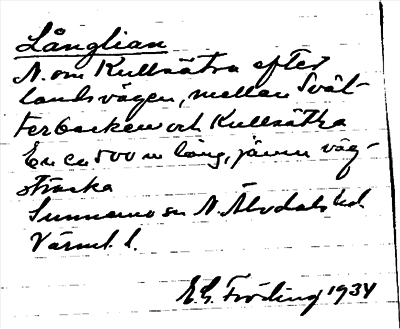 Långlian
N. om Kullsätra efter
landsvägen, mellan Svät-
terbacken och Kullsätra
En ca 500 m lång, jämn väg-
sträcka
Sunnemo sn N. Älvdals hd.
Värml. l.
E.G. Fröding 1934